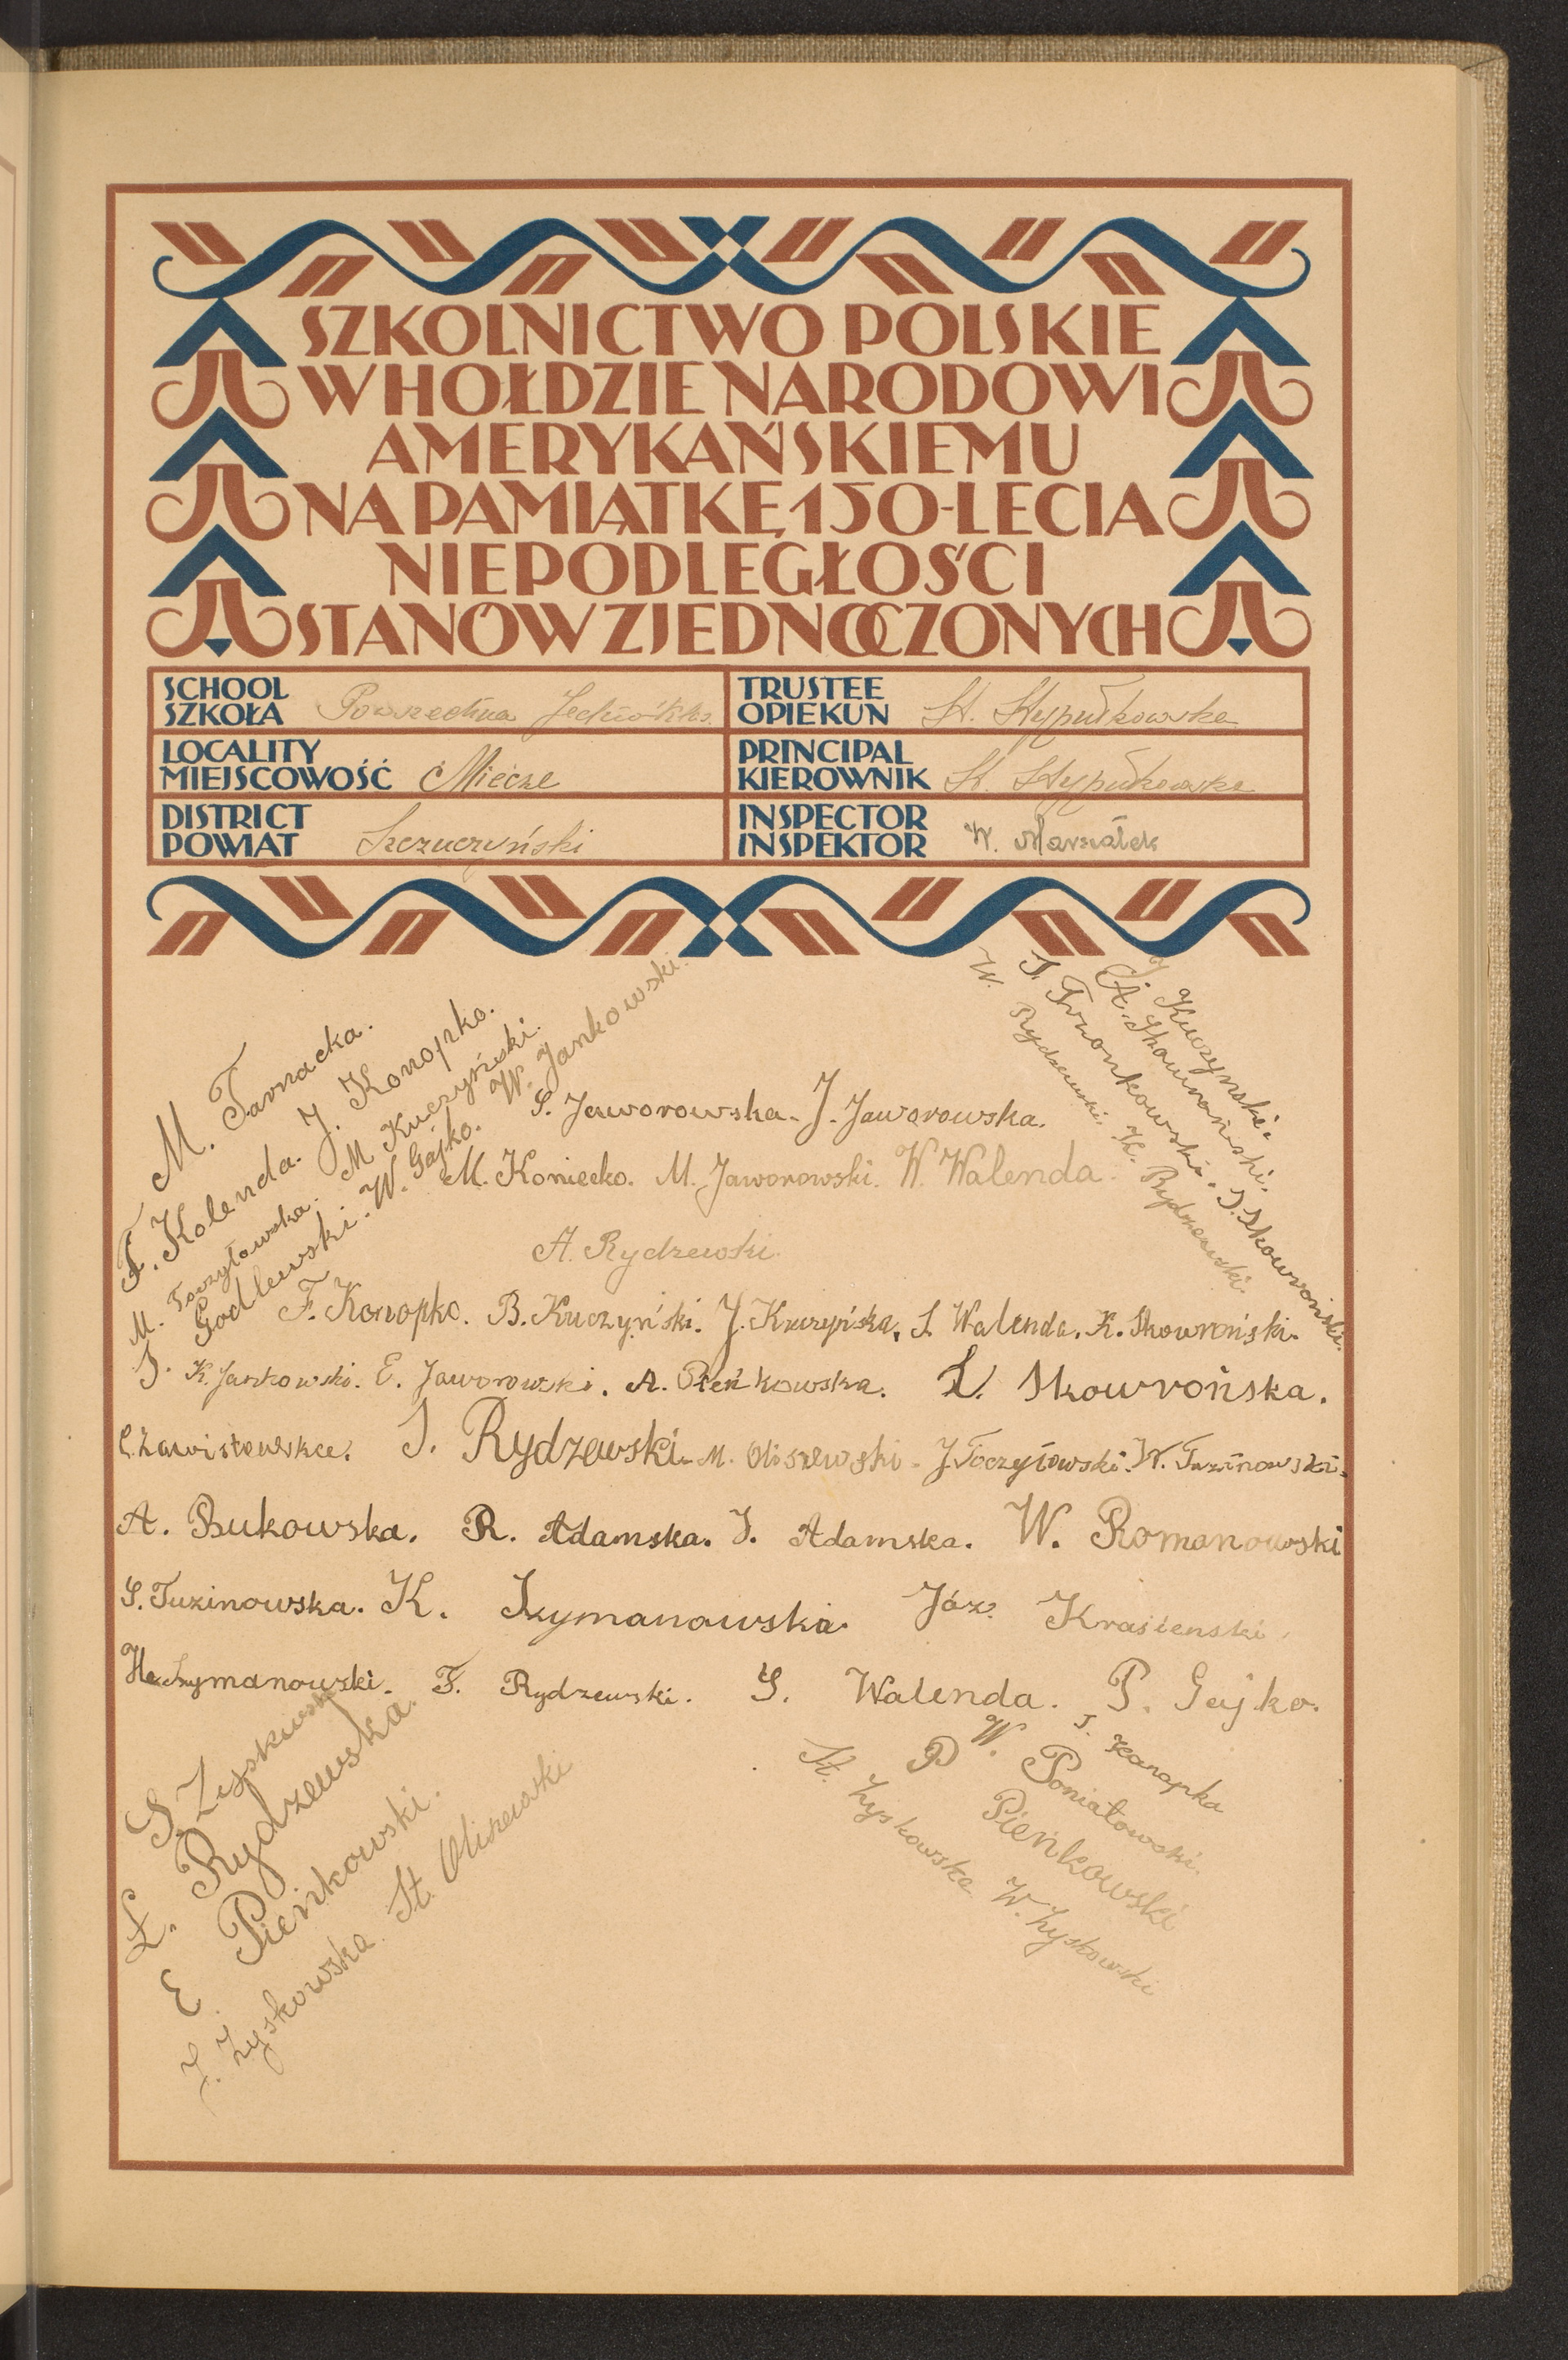 SZKOLNICTWO POLSKIE
W HOŁDZIE NARODOWI
AMERYKAŃSKIEMU
NA PAMIĄTKĘ 150-LECIA
NIEPODLEGŁOŚCI
STANÓW ZJEDNOCZONYCH
SCHOOL
SZKOŁA Powszechna
TRUSTEE
OPIEKUN St. Stypułkowska
LOCALITY
MIEJSCOWOŚĆ Miecze
PRINCIPAL
KIEROWNIK St. Stypułkowska
DISTRICT
POWIAT Szczuczyński
INSPECTOR
INSPEKTOR W. Marszałek
M. Tarnacka.
F. Kolenda. J. Konopko.
M. Toczyłowska. M Kuczyński.
J. Godlewski. W. Gajko. W. Jankowski.
J. Kuczynski.
A. Skowroński.
T. Trzonkowski. J. Skowroński.
W. Rydzewski. K. Rydzewski.
S. Jaworowska. J. Jaworowska.
M. Koniecko. M. Jaworowski. W. Walenda.
A. Rydzewski.
F. Konopko. B. Kuczyński. J. Kuczyńska. S. Walenda. K. Skowroński.
K. Jankowski. E. Jaworowski. A. Pieńkowska. L. Skowrońska.
J. Rydzewski. M. Oliszewski. J. Toczyłowski. W. Tuzinowski.
A. Bukowska. R. Adamska. J. Adamska. W. Romanowski
S. Tuzinowska. K. Szymanowska. Józ. Krasienski.
Szymanowski. F. Rydzewski. S. Walenda. P. Gajko.
S.
Ł. Rydzewska.
E. Pieńkowski.
J. Zyskowska. St. Oliszewski
J. Konopka
W. Poniatowski.
P Pieńkowski
St. Zyskowska W. Zyskowski